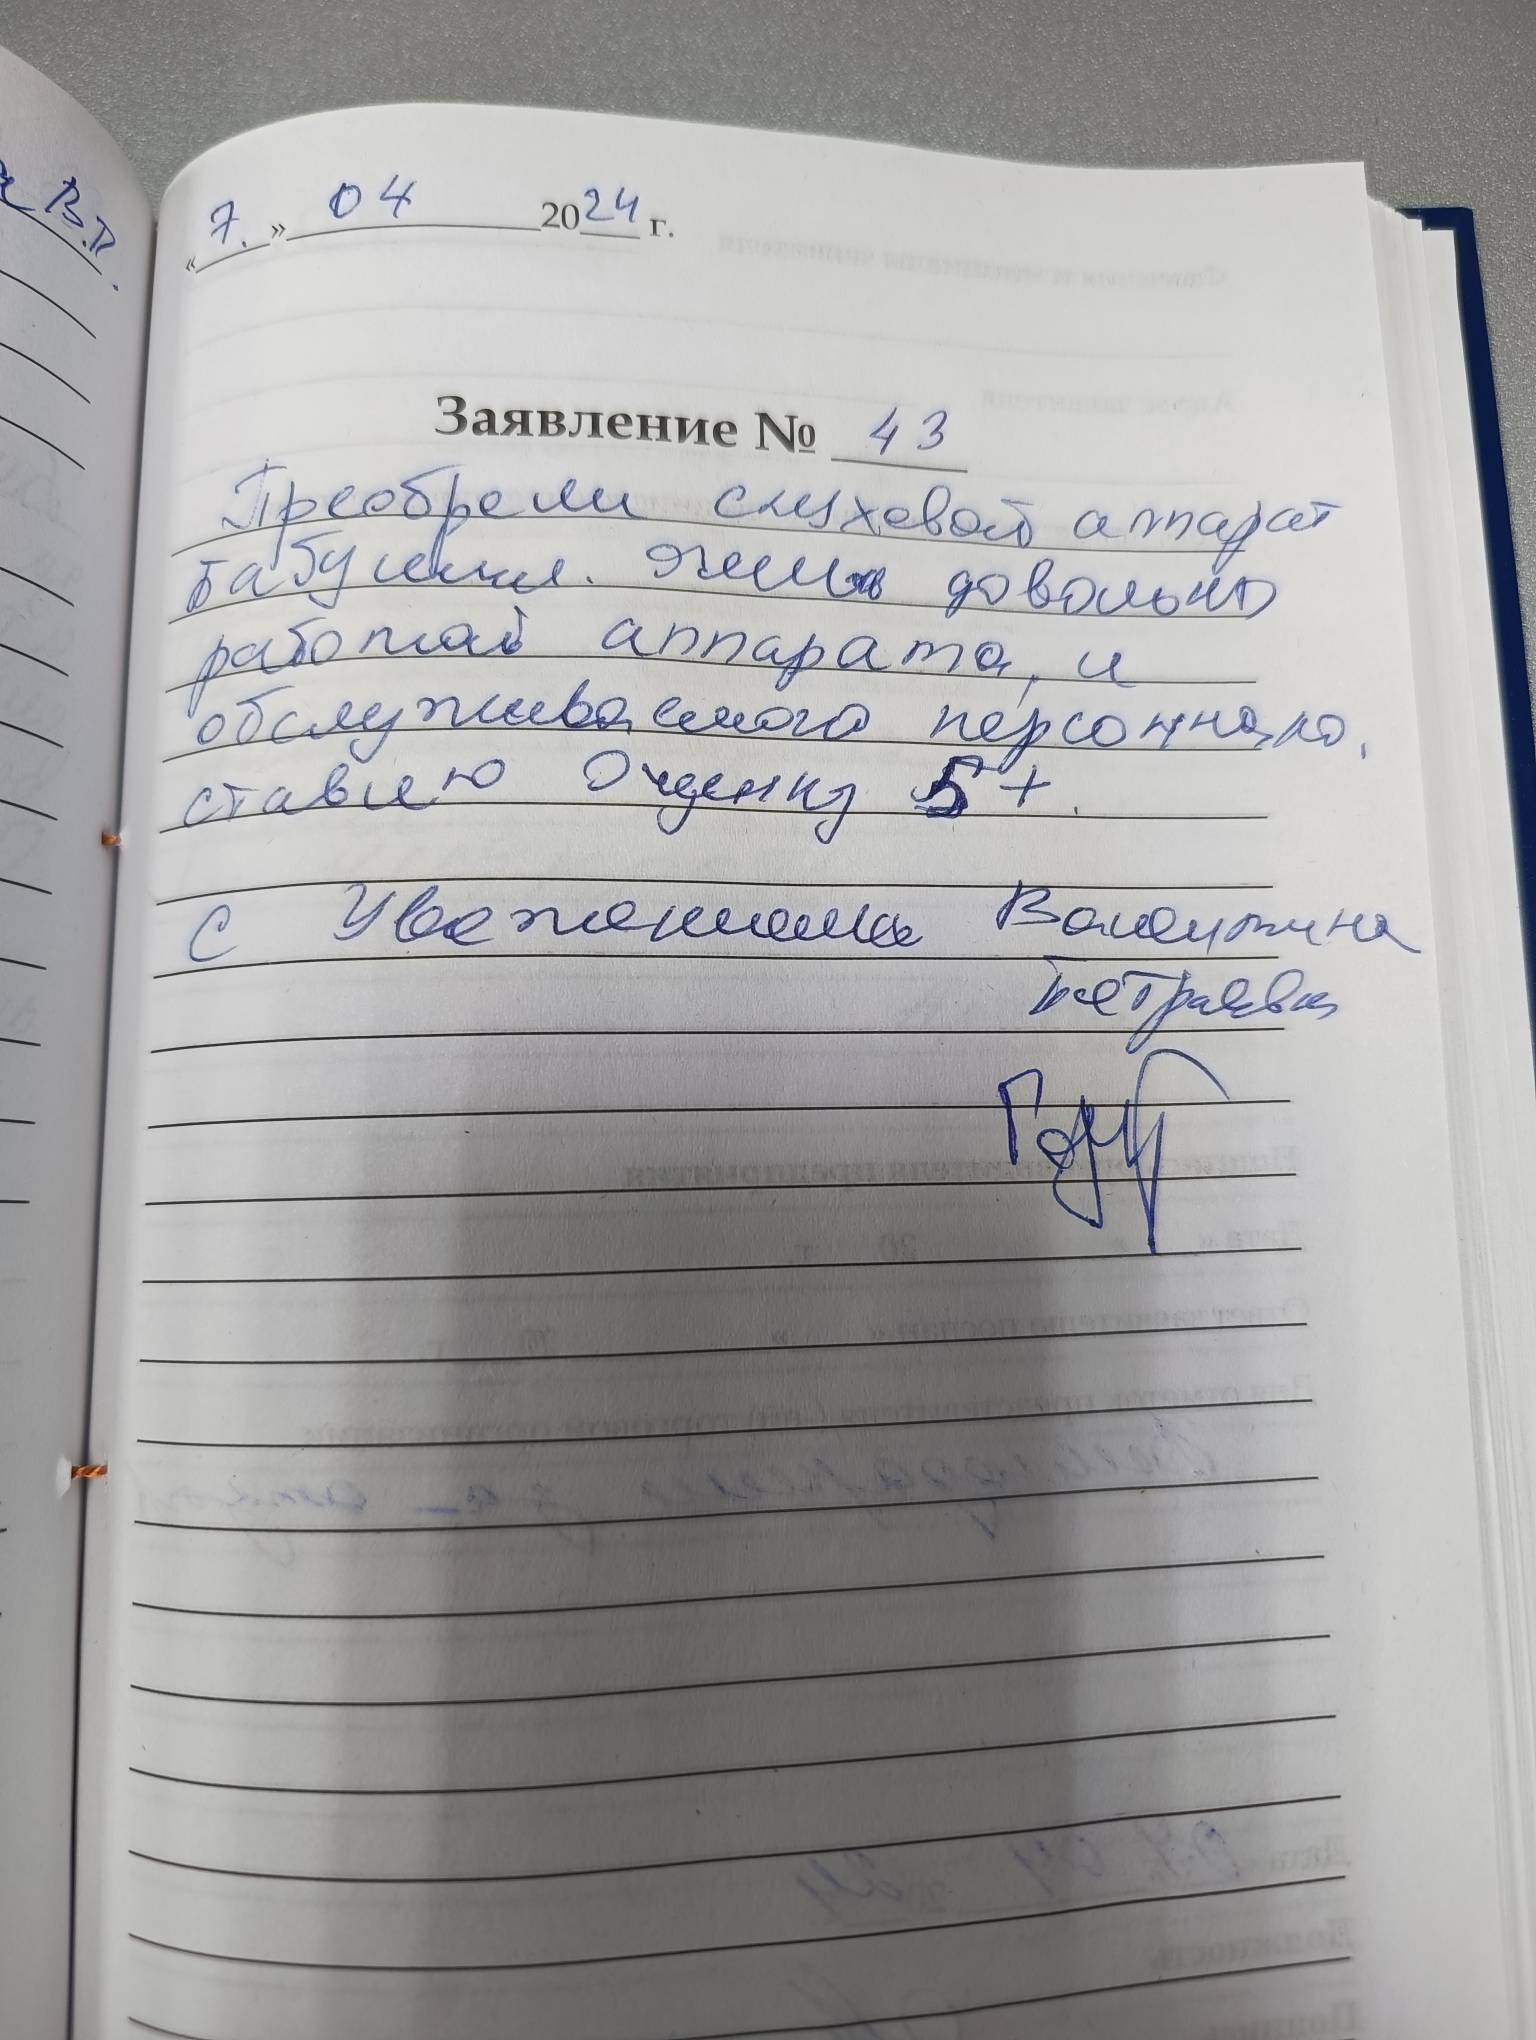 а В.П.
«7.» 04 2024 г.
Заявление № 43
Преобрели слуховой аппарат
бабушки. Очень довольны
работай аппарата, и
обслуживаемого персоннала,
ставлю Оценку 5+.
С Уважением Валентина
Петраевна